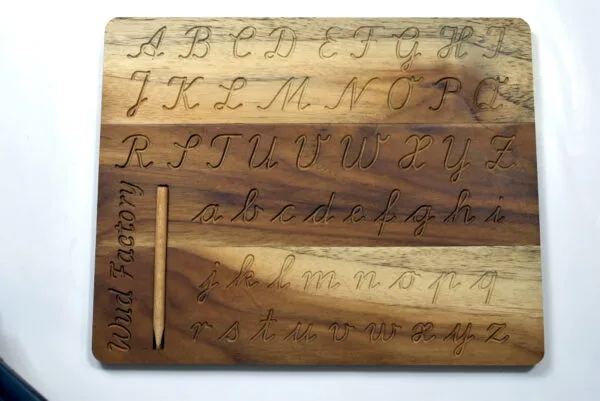 A B C D E F G H I
J K L M N O P Q
R S T U V W X Y Z
a b c d e f g h i
j k l m n o p q
r s t u v w x y z
Wud Factory